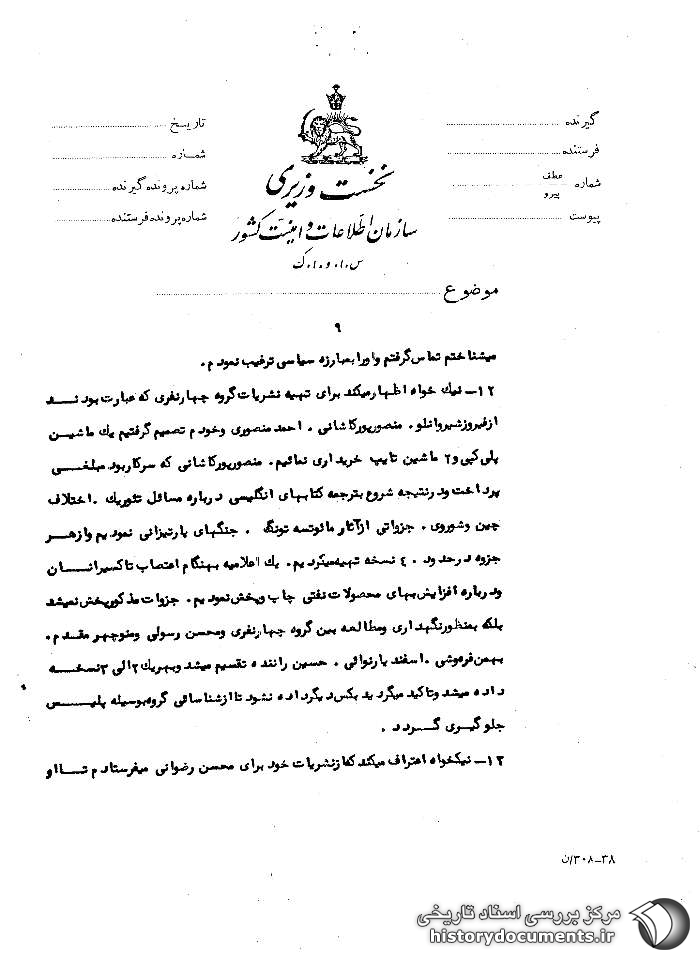 گیرنده
فرستنده
شماره عطف پیرو
پیوست
تاریخ
شماره
شماره پرونده گیرنده
شماره پرونده فرستنده
نخست وزیری
سازمان اطلاعات و امنیت کشور
س.ا.و.ا.ک
موضوع
۹
میشناختم تماس گرفتم و اورا بمبارزه سیاسی ترغیب نمودم.
۱۲- نیک خواه اظهار میکند برای تهیه نشریات گروه چهارنفری که عبارت بودند
ازفیروزشیروانلو. منصورپورکاشانی . احمد منصوری وخودم تصمیم گرفتیم یک ماشین
پلی کپی و۲ ماشین تایپ خریداری نمائیم. منصورپورکاشانی که سرکاربود مبلغی
پرداخت ودرنتیجه شروع بترجمه کتابهای انگلیسی درباره مسائل تئوریک .اختلاف
چین وشوروی . جزواتی ازآثار مائوتسه تونگ . جنگهای پارتیزانی نمودیم وازهر
جزوه درحدود ۴۰ نسخه تهیه میکردیم. یک اعلامیه بهنگام اعتصاب تاکسیرانان
ودرباره افزایش بهای محصولات نفتی چاپ وپخش نمودیم. جزوات مذکورپخش نمیشد
بلکه بمنظورنگهداری ومطالعه بین گروه چهارنفری ومحسن رسولی ومنوچهر مقدم.
بهمن فرموشی .اسفندیارنوائی . حسین راننده تقسیم میشد وبهریک ۲ الی ۳ نسخه
داده میشد وتاکید میگردید بکس دیگرداده نشود تاازشناسائی گروه بوسیله پلیس
جلوگیری گردد .
۱۳- نیکخواه اعتراف میکند که ازنشریات خود برای محسن رضوانی میفرستادم تااو
۳۸-۳۰۸/ن
مرکز بررسی اسناد تاریخی
historydocuments.ir